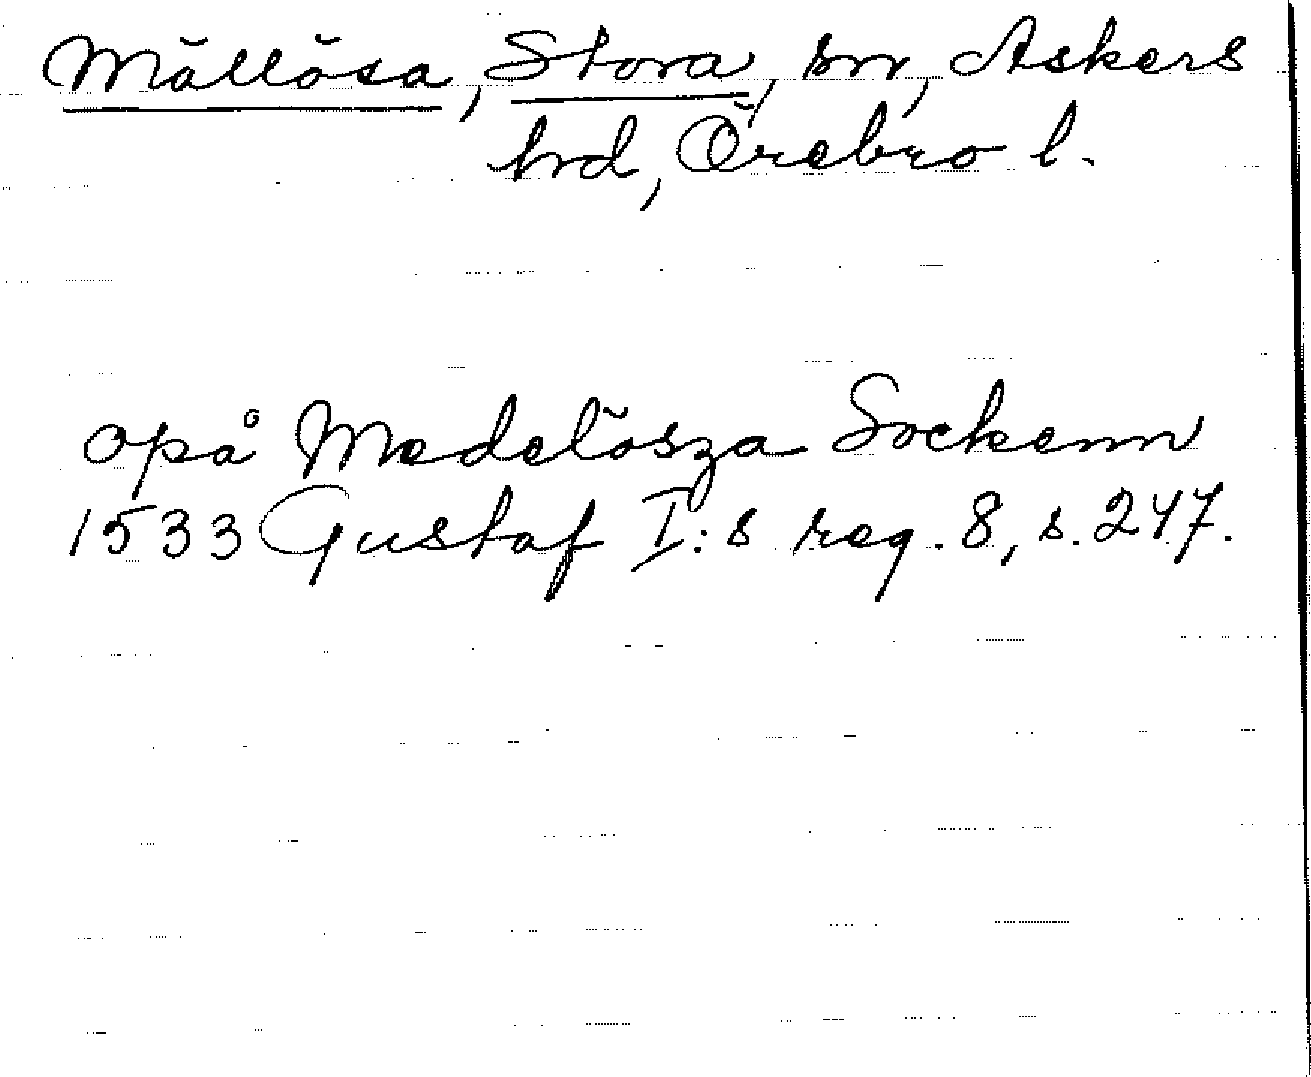 Mällösa, Stora, sn, Askers
hd, Örebro l.
opå Medelösza Sockenn
1533 Gustaf I:s reg. 8, s. 247.